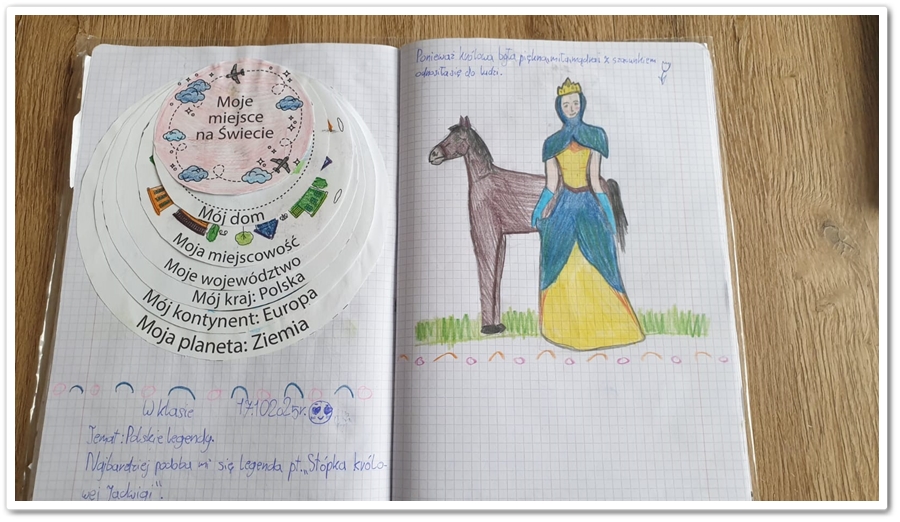 Moje
miejsce
na Świecie
Mój dom
Moja miejscowość
Moje województwo
Mój kraj: Polska
Mój kontynent: Europa
Moja planeta: Ziemia
W klasie 17.10.2025r.
Temat: Polskie legendy.
Najbardziej podoba mi się legenda pt. „Stópka królo-
wej Jadwigi".
Ponieważ królowa była piękna, miła, mądra i z szacunkiem
odnosiła się do ludu.